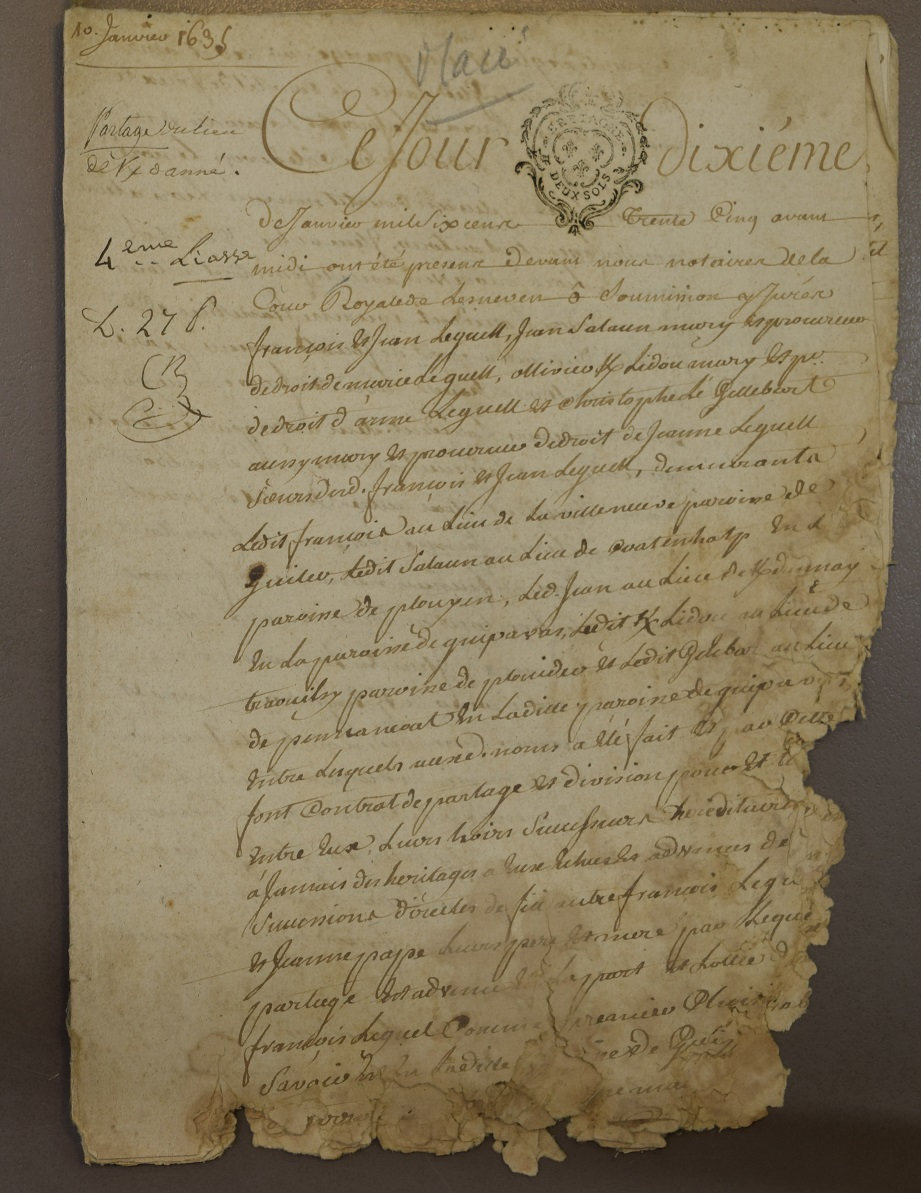 10. Janvier 1635
Placé
Partage du lieu
de Kdanné.
4eme Liasse
L. 27 P.
Ce Jour dixiéme
BRETAGNE
DEUX SOLS
de Janvier mil Six cens Trente Cinq avant
midi ont été presens devant nous notaires de la
Cour Royale de Lesneven ô Soumission y Jurée
françois et Jean Leguell, Jean Salaun mary et procureur
de droit de marie Leguell, ollivier K Lidou mary et pr.
de droit d'anne Leguell et Christophe Le Gillebert
aussy mary et procureur de droit de Jeanne Leguell
Soeurs dud. françois et Jean Leguell, demeurants
Ledit françois au Lieu de La villeneuve paroisse de
Guiler, Ledit Salaun au Lieu de Coatenhalp En L
paroisse de plouyen, Led. Jean au Lieu de
En La paroisse de quipavas, Ledit K Lidou au Lieu de
paroisse de ploudier et Ledit au Lieu
de En Ladite paroisse de quipava
Entre Lesquels auxd. noms a été fait et par Cette
font Contrat de partage et division pour Et E
Entre Eux, Leurs hoirs Successeurs hereditaire
á Jamais des heritages a Eux Echus et advenus de
Successions d'iceles de feu autre françois Legu
et Jeanne pape Leurs pere et mere par Leque
partage est advenu En La part et Lottie d
françois Leguel Comme premier
Savoir En Ladite de